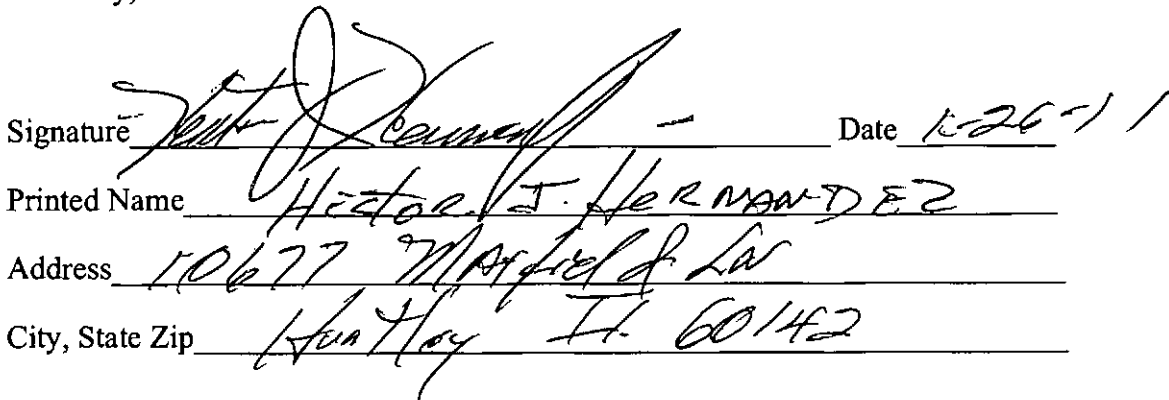 Signature Date 1-26-11
Printed Name Hector J. HERNANDEZ
Address 10677 Mayfield Ln
City, State Zip Huntley Il. 60142